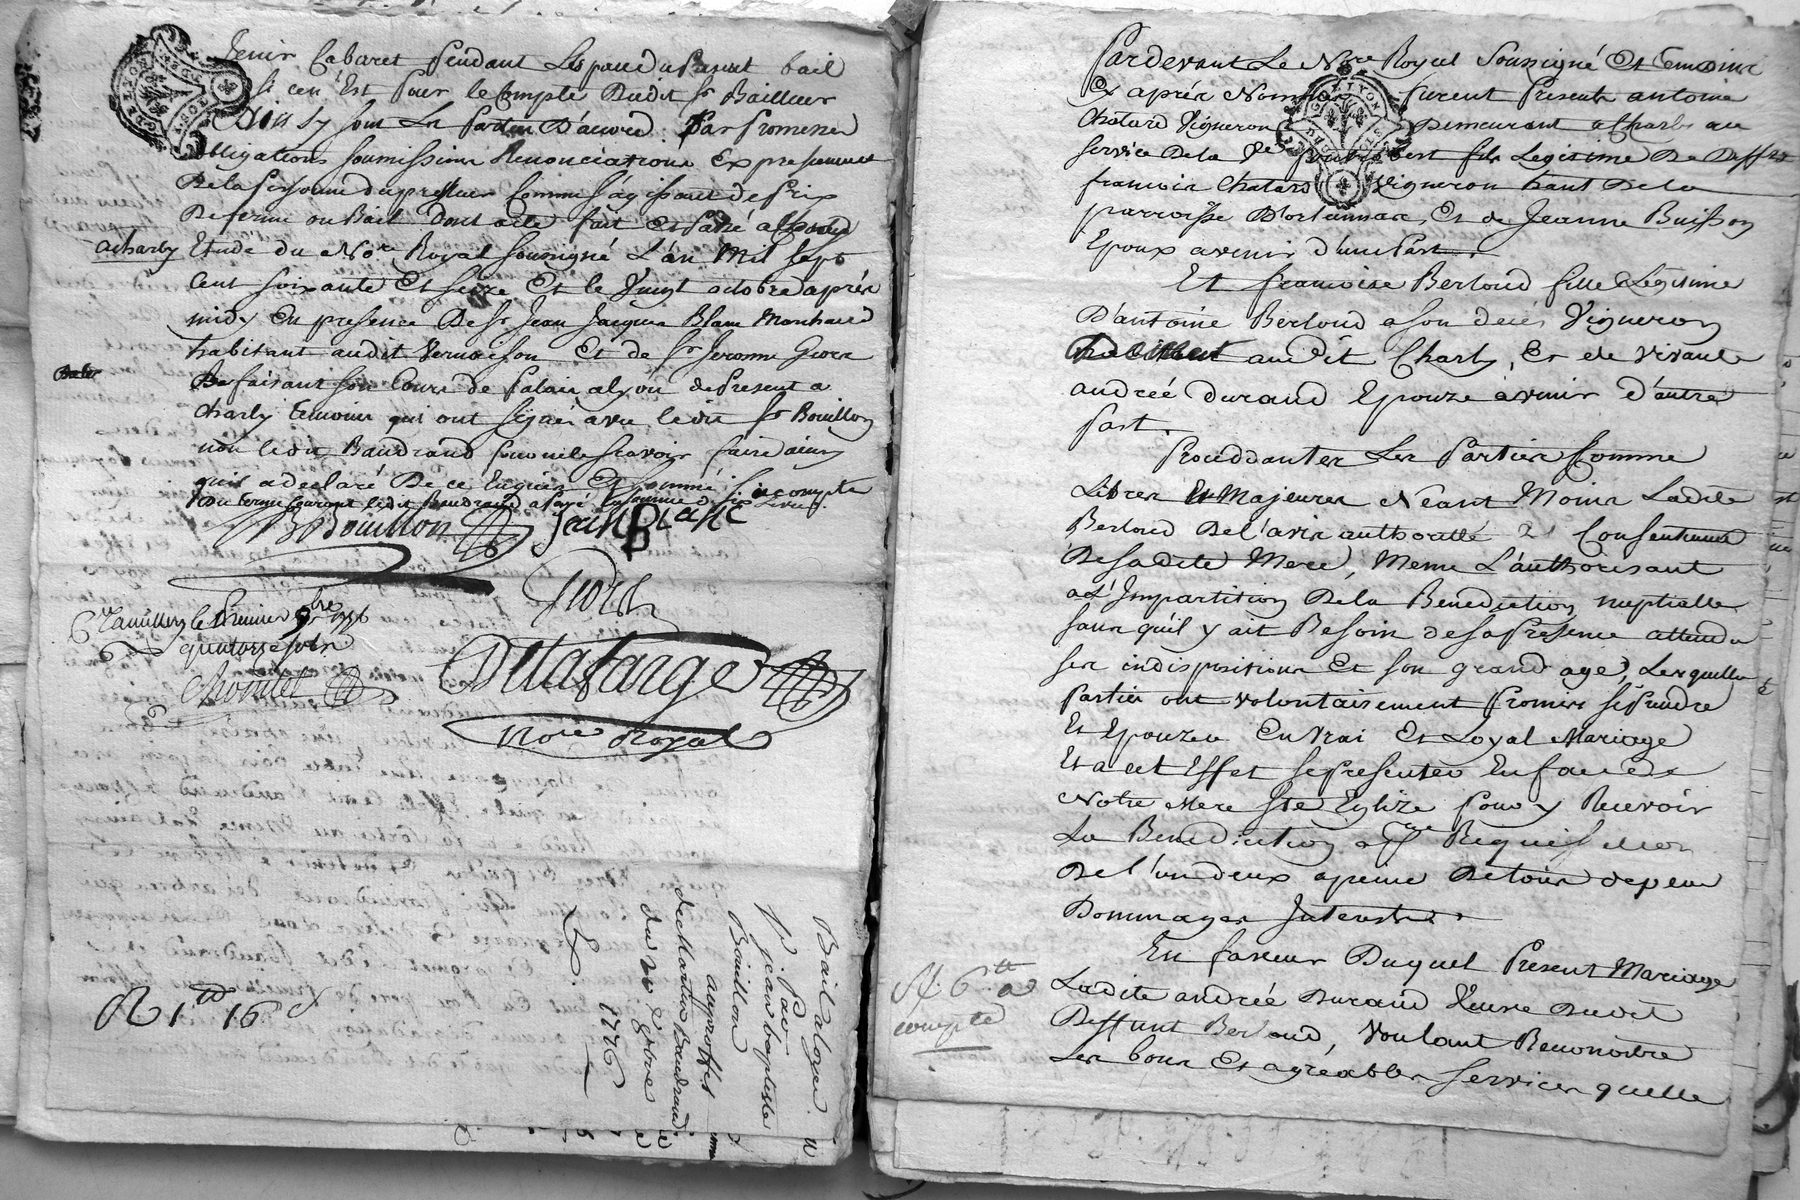 Tenir Cabaret pendant l'espace du present bail
si cen'Est pour le Compte Dudit Sr Bailleur
Ainsy sont les parties D'accord par promesse
obligations soumissions Renonciations Expressement
De la personne du preneur comme s'agissant de prix
De ferme ou Bail dont acte fait et passé
acharly Etude du Nore Royal soussigné L'an Mil sept
cent soixante Et seize Et le Vingt octobre après
midy En presence De Sr Jean Jacques Blanc Monhard
habitant audit Vernaison Et de Sr Jerome Giora
De faisant son Cours de palais alyon de present a
Charly temoins qui ont signé avec ledit Sr Bouillon
non ledit Baudrand pour ne le scavoir faire ainsy
quil a declaré De ce Enquis Et sommé
du terme courant ledit Baudrand a payé la somme de six Livres a compte
Bouillon Jean Blanc
Giora
Delafarge
Nore Royal
le premier 9bre 1776
quatorze sols
R 1tt 16 d
Bail aloyer
pr. Sr jean baptiste
Bouillon
au proffit
de Martin Baudrand
du 20 8bre
1776
Pardevant Le Nore Royal Soussigné Et temoins
Cy après Nommés furent Presents antoine
Chatard Vigneron Demeurant a Charly au
service De la Ve fils Legitime De Deffts
francois Chatard Vigneron Vivant De la
parroisse D'orliennas, Et de Jeanne Buisson
Epoux avenir d'une Part.
Et francoise Berloud fille Legitime
D'antoine Berloud a son decés Vigneron
habitant audit Charly, Et de vivante
andrée durand Epouze avenir d'autre
Part.
Procedantes Les Parties Comme
Libres Et Majeures Néant Moins Ladite
Berloud De l'avis authorité & Consentement
De sadite Mere, Meme L'authorisant
a L'Impartition De la Benediction nuptialle
sans quil y ait Besoin de sa presence attendu
ses indispositions Et son grand age, Lesquelles
parties ont volontairement promis se prendre
Et Epouzer En vrai Et Loyal Mariage
Et a cet Effet se presenter En face de
Notre Mere Ste Eglize pour y Recevoir
La Benediction a la Requisition
De l'un deux a peine De tous depens
Dommages Interests.
En faveur Duquel Present Mariage
Ladite andrée Durand Veuve Dudit
Deffunt Berloud, Voulant Reconoitre
Les bons Et agréables services quelle
R. 6tt a
compte